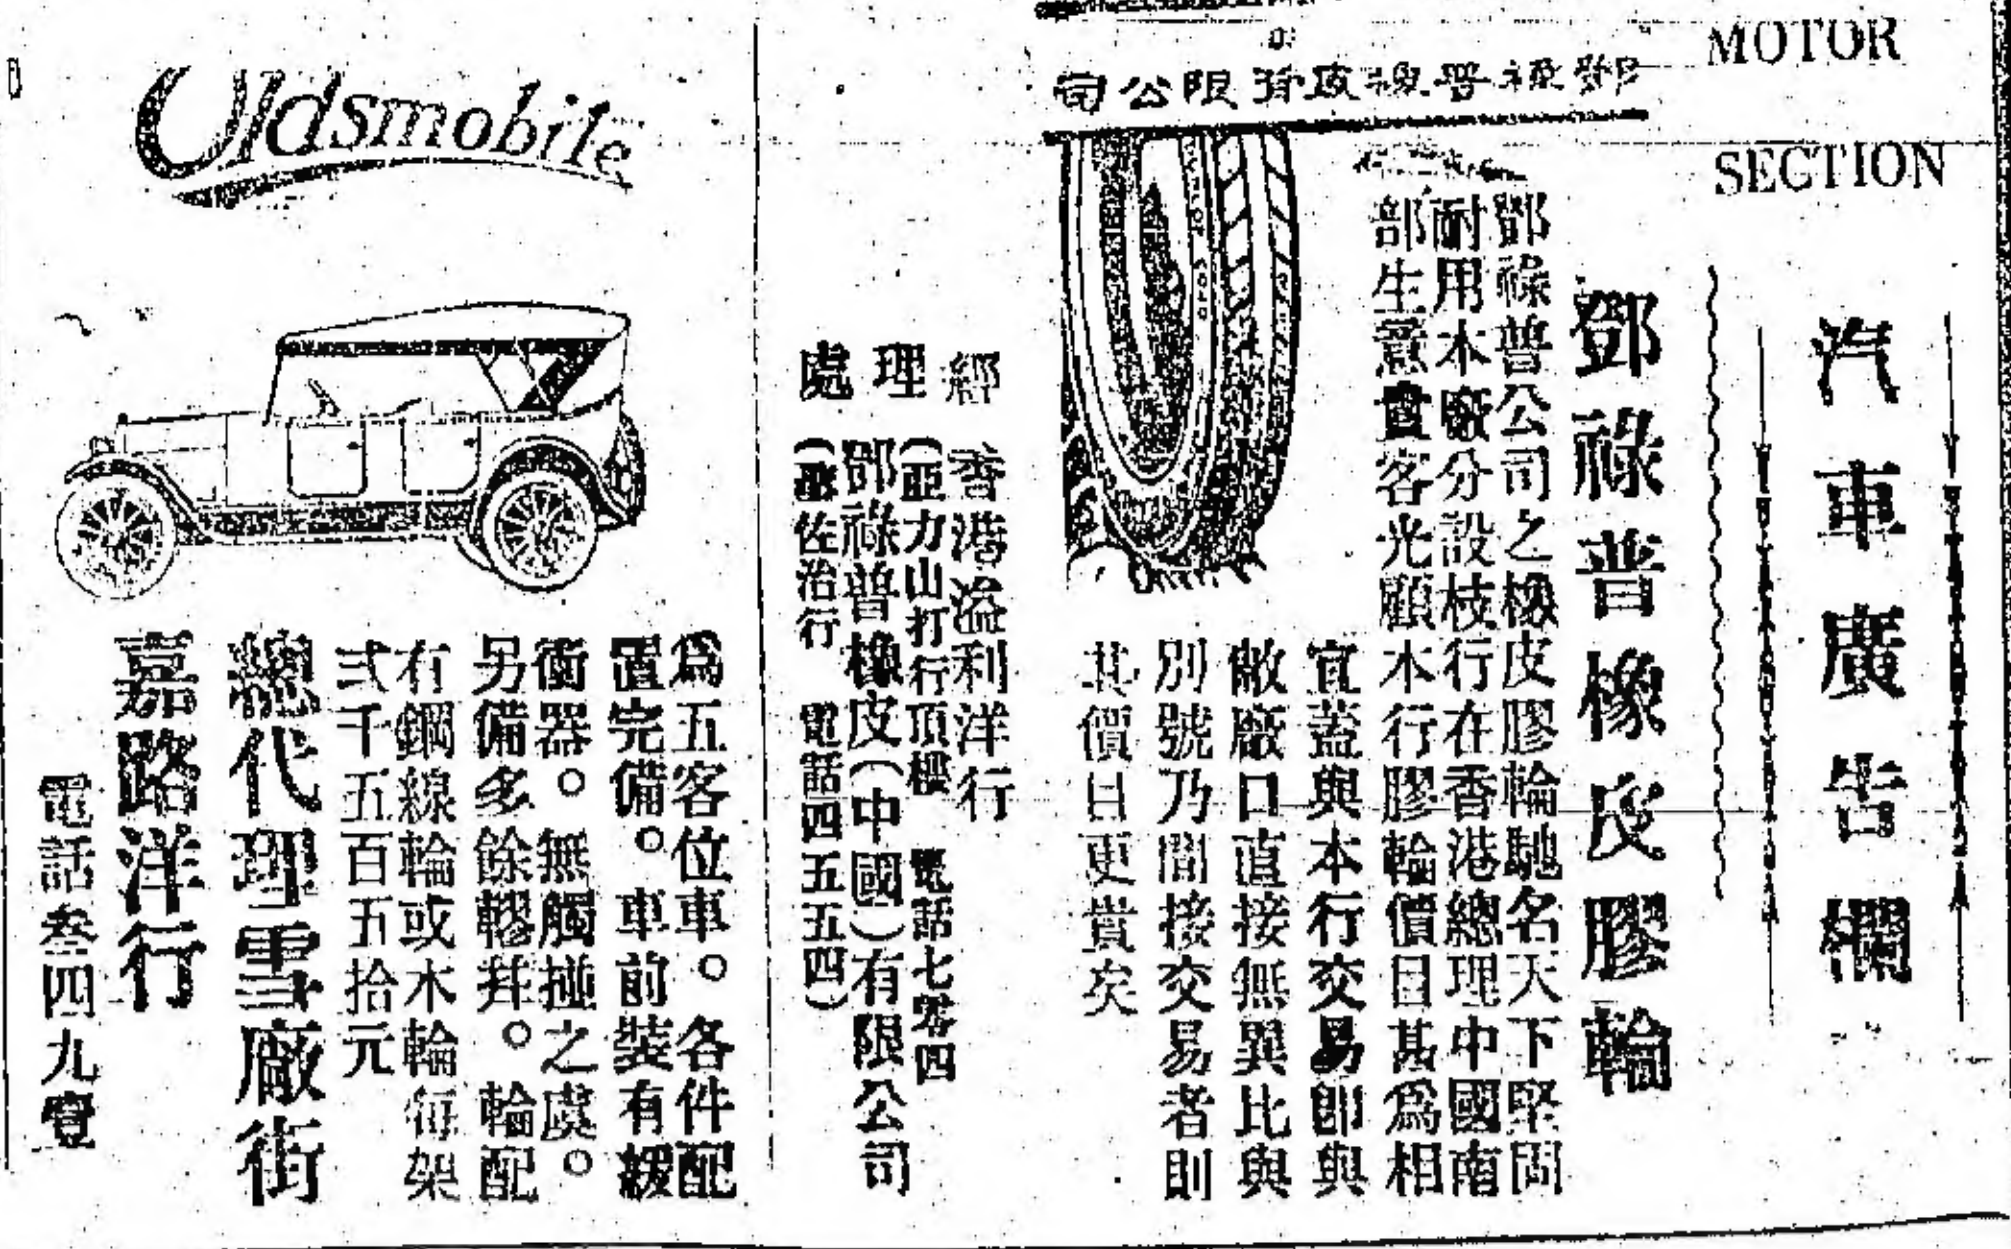 MOTOR
SECTION
汽車廣告欄
鄧祿普橡皮膠輪
鄧祿普公司之橡皮膠輪馳名天下堅固
耐用本廠分設枝行在香港總理中國南
部生意貴客光顧本行膠輪價目甚爲相
宜蓋與本行交易卽與
敝廠口直接無異比與
別號乃間接交易者則
其價目更貴矣
鄧祿普橡皮有限公司
經理處
香港溢利洋行
(亞力山打行頂樓 電話七零四
鄧祿普橡皮(中國)有限公司
佐治行 電話四五五四)
Oldsmobile
爲五客位車。各件配
置完備。車前裝有緩
衝器。無觸撞之虞。
另備多餘轇㧯。輪配
有鋼線輪或木輪每架
弍千五百五拾元
總代理雪廠街
嘉路洋行
電話叁四九壹